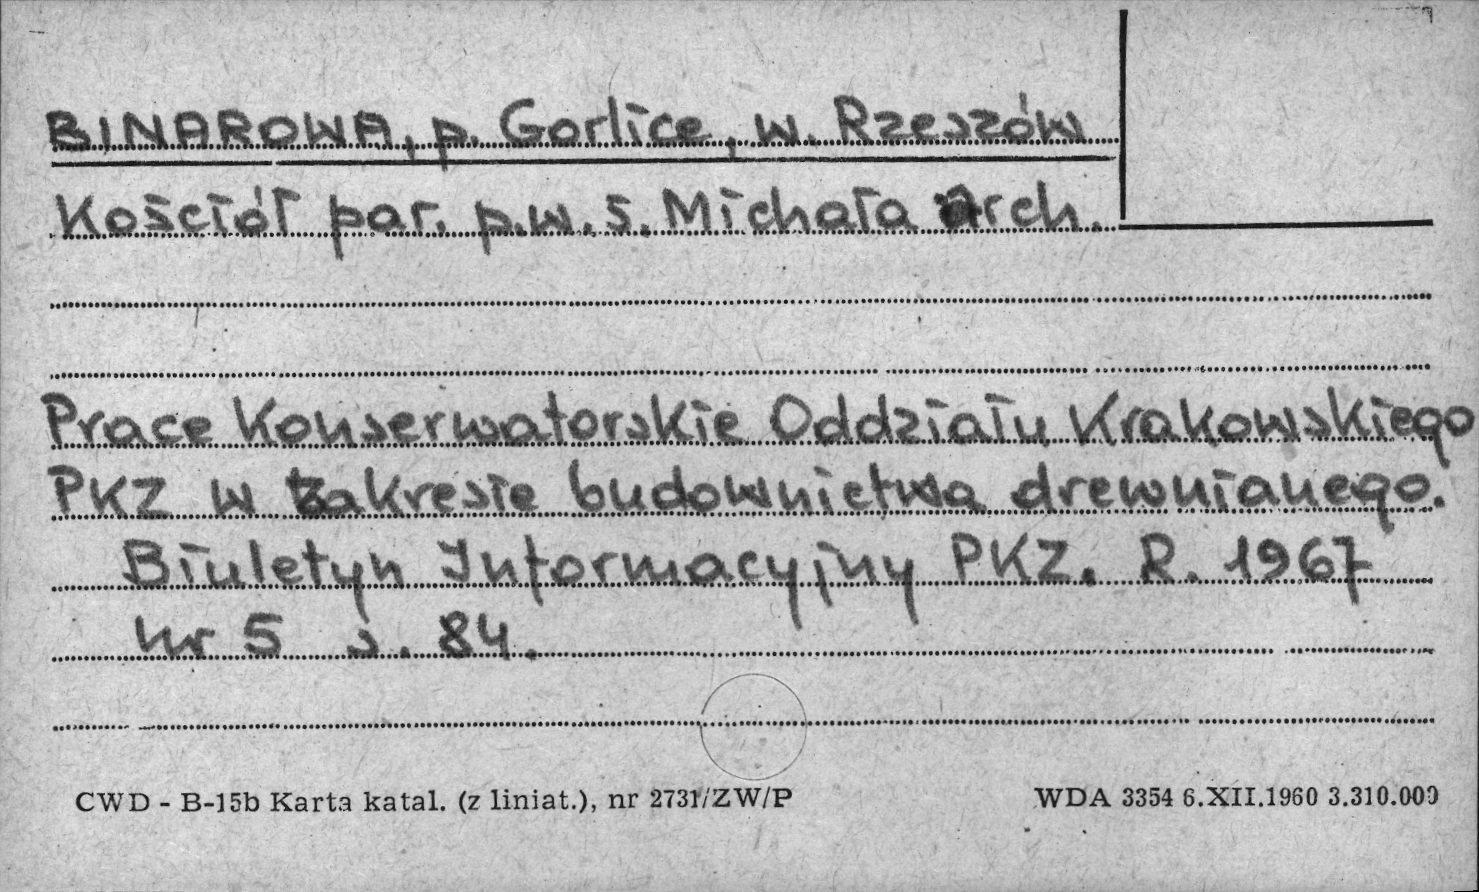 BINAROWA, p. Gorlice, w. Rzeszów
Kościół par. p.w. s. Michała arch.
Prace Konserwatorskie Oddziału Krakowskiego
PKZ w zakresie budownictwa drewnianego.
Biuletyn Informacyjny PKZ. R. 1967
nr 5 s. 84.
CWD - B-15b Karta katal. (z liniat.), nr 2731/ZW/P
WDA 3354 6.XII.1960 3.310.000